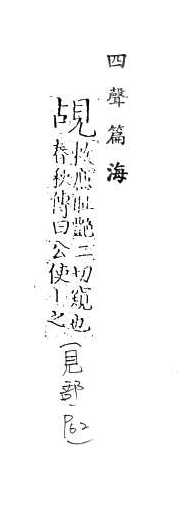 四聲篇海
覘
丑艷二切窺也
春秋傳曰公使丨之
(見部 P62)